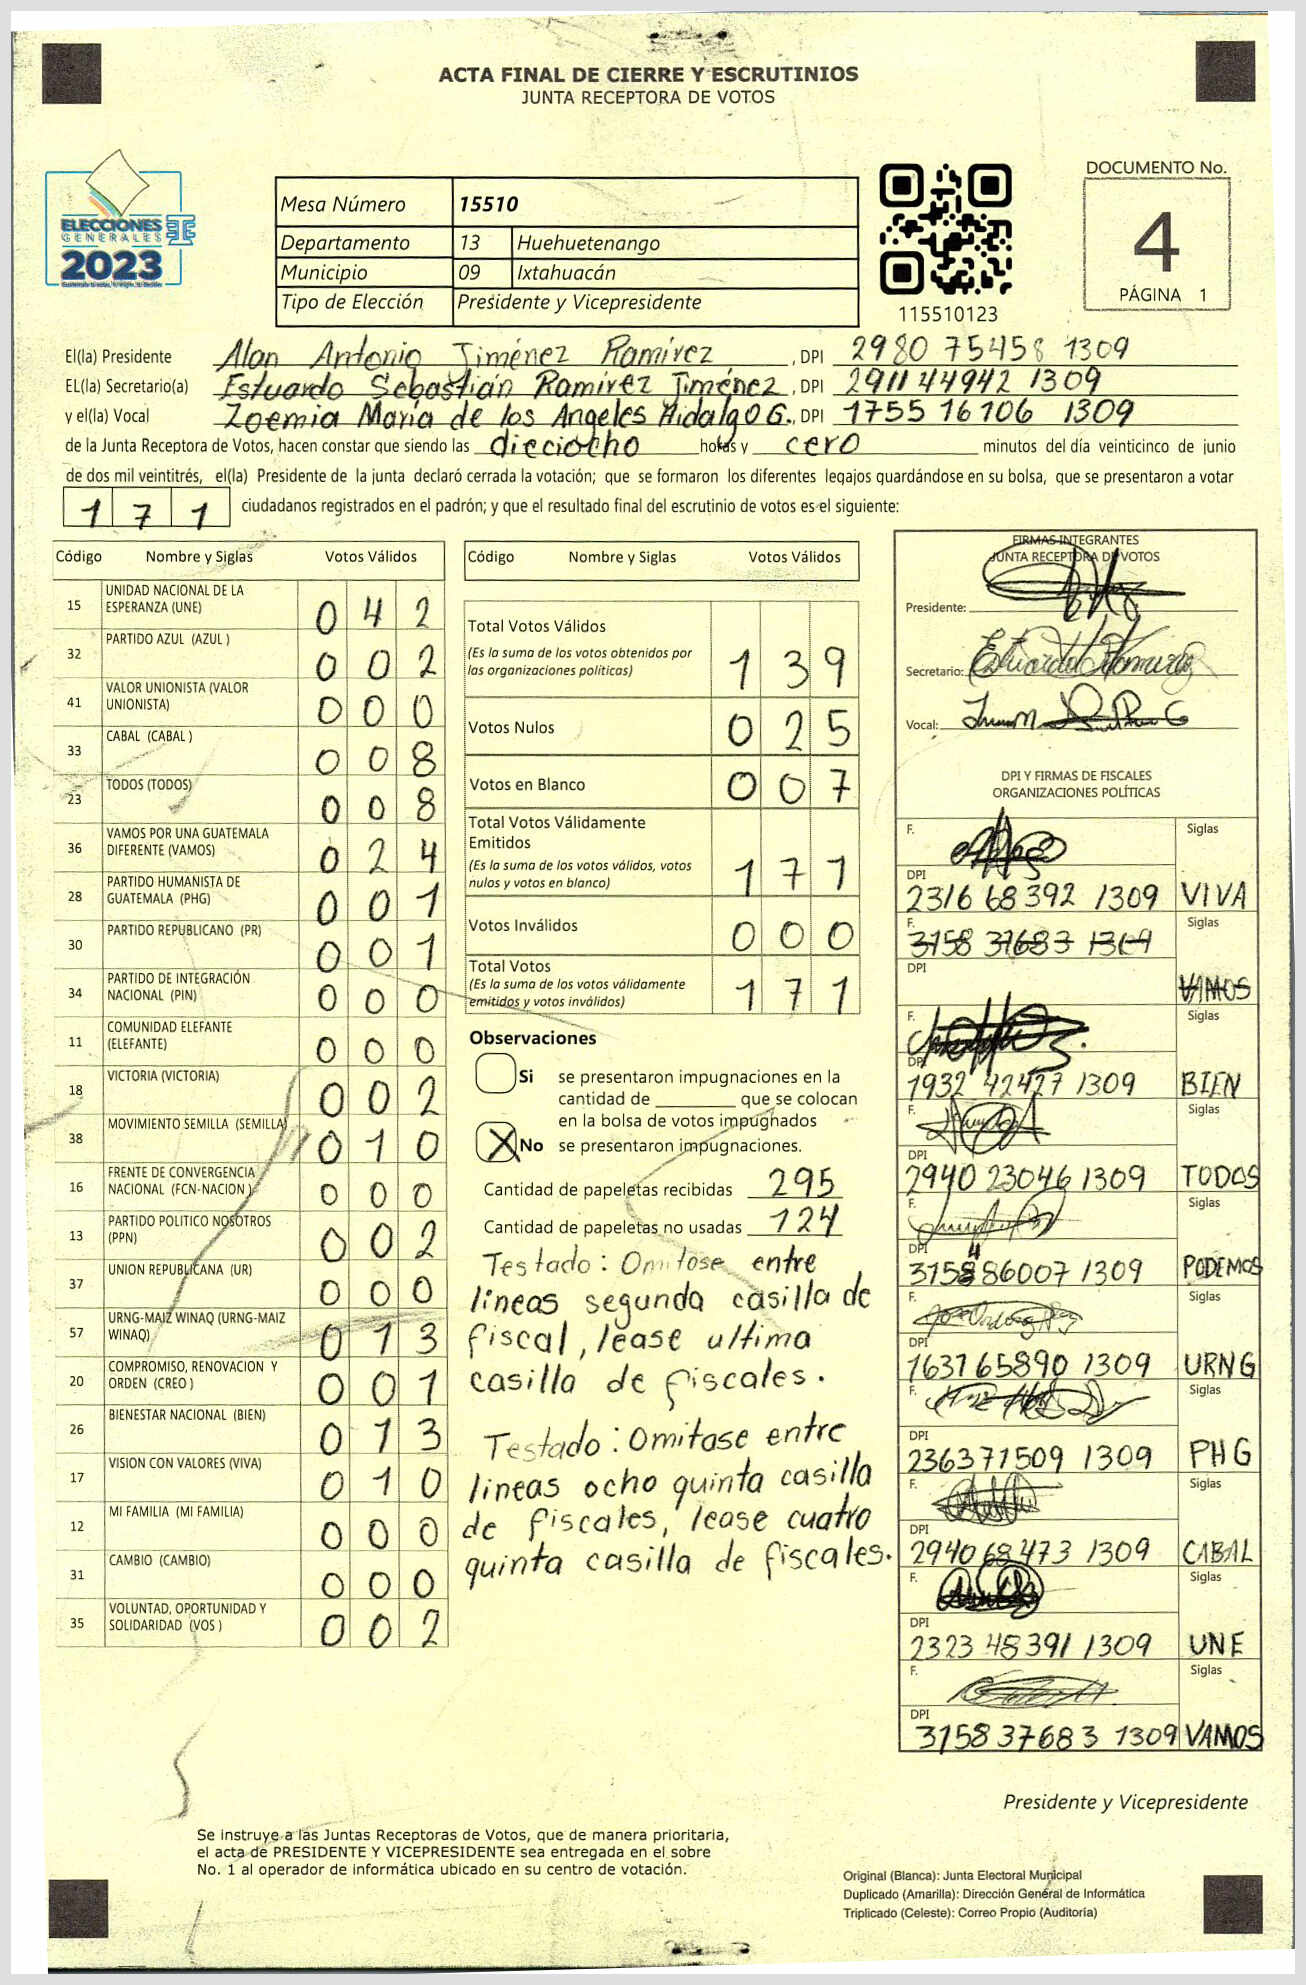 ACTA FINAL DE CIERRE Y ESCRUTINIOS
JUNTA RECEPTORA DE VOTOS
ELECCIONES
GENERALES
2023
Mesa Número 15510
Departamento 13 Huehuetenango
Municipio 09 Ixtahuacán
Tipo de Elección Presidente y Vicepresidente
115510123
DOCUMENTO No.
4
PÁGINA 1
El(la) Presidente Alan Antonio Jiménez Ramírez , DPI 2980 75458 1309
EL(la) Secretario(a) Estuardo Sebastián Ramírez Jiménez , DPI 2911 44942 1309
y el(la) Vocal Zoemia María de los Angeles Hidalgo G. , DPI 1755 16106 1309
de la Junta Receptora de Votos, hacen constar que siendo las dieciocho horas y cero minutos del día veinticinco de junio
de dos mil veintitrés, el(la) Presidente de la junta declaró cerrada la votación; que se formaron los diferentes legajos guardándose en su bolsa, que se presentaron a votar
171 ciudadanos registrados en el padrón; y que el resultado final del escrutinio de votos es el siguiente:
Código Nombre y Siglas Votos Válidos
15 UNIDAD NACIONAL DE LA ESPERANZA (UNE) 042
32 PARTIDO AZUL (AZUL ) 002
41 VALOR UNIONISTA (VALOR UNIONISTA) 000
33 CABAL (CABAL ) 008
23 TODOS (TODOS) 008
36 VAMOS POR UNA GUATEMALA DIFERENTE (VAMOS) 024
28 PARTIDO HUMANISTA DE GUATEMALA (PHG) 001
30 PARTIDO REPUBLICANO (PR) 001
34 PARTIDO DE INTEGRACIÓN NACIONAL (PIN) 000
11 COMUNIDAD ELEFANTE (ELEFANTE) 000
18 VICTORIA (VICTORIA) 002
38 MOVIMIENTO SEMILLA (SEMILLA) 010
16 FRENTE DE CONVERGENCIA NACIONAL (FCN-NACION ) 000
13 PARTIDO POLITICO NOSOTROS (PPN) 002
37 UNION REPUBLICANA (UR) 000
57 URNG-MAIZ WINAQ (URNG-MAIZ WINAQ) 013
20 COMPROMISO, RENOVACION Y ORDEN (CREO ) 001
26 BIENESTAR NACIONAL (BIEN) 013
17 VISION CON VALORES (VIVA) 010
12 MI FAMILIA (MI FAMILIA) 000
31 CAMBIO (CAMBIO) 000
35 VOLUNTAD, OPORTUNIDAD Y SOLIDARIDAD (VOS ) 002
Código Nombre y Siglas Votos Válidos
Total Votos Válidos 139
(Es la suma de los votos obtenidos por
las organizaciones políticas)
Votos Nulos 025
Votos en Blanco 007
Total Votos Válidamente
Emitidos 171
(Es la suma de los votos válidos, votos
nulos y votos en blanco)
Votos Inválidos 000
Total Votos 171
(Es la suma de los votos válidamente
emitidos y votos inválidos)
Observaciones
Si se presentaron impugnaciones en la
cantidad de ________ que se colocan
en la bolsa de votos impugnados
X No se presentaron impugnaciones.
Cantidad de papeletas recibidas 295
Cantidad de papeletas no usadas 124
Testado: Omitase entre
lineas segunda casilla de
fiscal, lease ultima
casilla de fiscales.
Testado: Omitase entre
lineas ocho quinta casilla
de fiscales, lease cuatro
quinta casilla de fiscales.
FIRMAS INTEGRANTES
JUNTA RECEPTORA DE VOTOS
Presidente:
Secretario: Estuardo Ramirez
Vocal:
DPI Y FIRMAS DE FISCALES
ORGANIZACIONES POLÍTICAS
F. Siglas
DPI
2316 68392 1309 VIVA
F. Siglas
3158 37683 1309
DPI
VAMOS
F. Siglas
DPI
1932 42427 1309 BIEN
F. Siglas
DPI
2940 23046 1309 TODOS
F. Siglas
DPI 4
3158 86007 1309 PODEMOS
F. Siglas
DPI
1637 65890 1309 URNG
F. Siglas
DPI
2363 71509 1309 PHG
F. Siglas
DPI
2940 68473 1309 CABAL
F. Siglas
DPI
2323 48391 1309 UNE
F. Siglas
DPI
3158 37683 1309 VAMOS
Presidente y Vicepresidente
Se instruye a las Juntas Receptoras de Votos, que de manera prioritaria,
el acta de PRESIDENTE Y VICEPRESIDENTE sea entregada en el sobre
No. 1 al operador de informática ubicado en su centro de votación.
Original (Blanca): Junta Electoral Municipal
Duplicado (Amarilla): Dirección General de Informática
Triplicado (Celeste): Correo Propio (Auditoría)